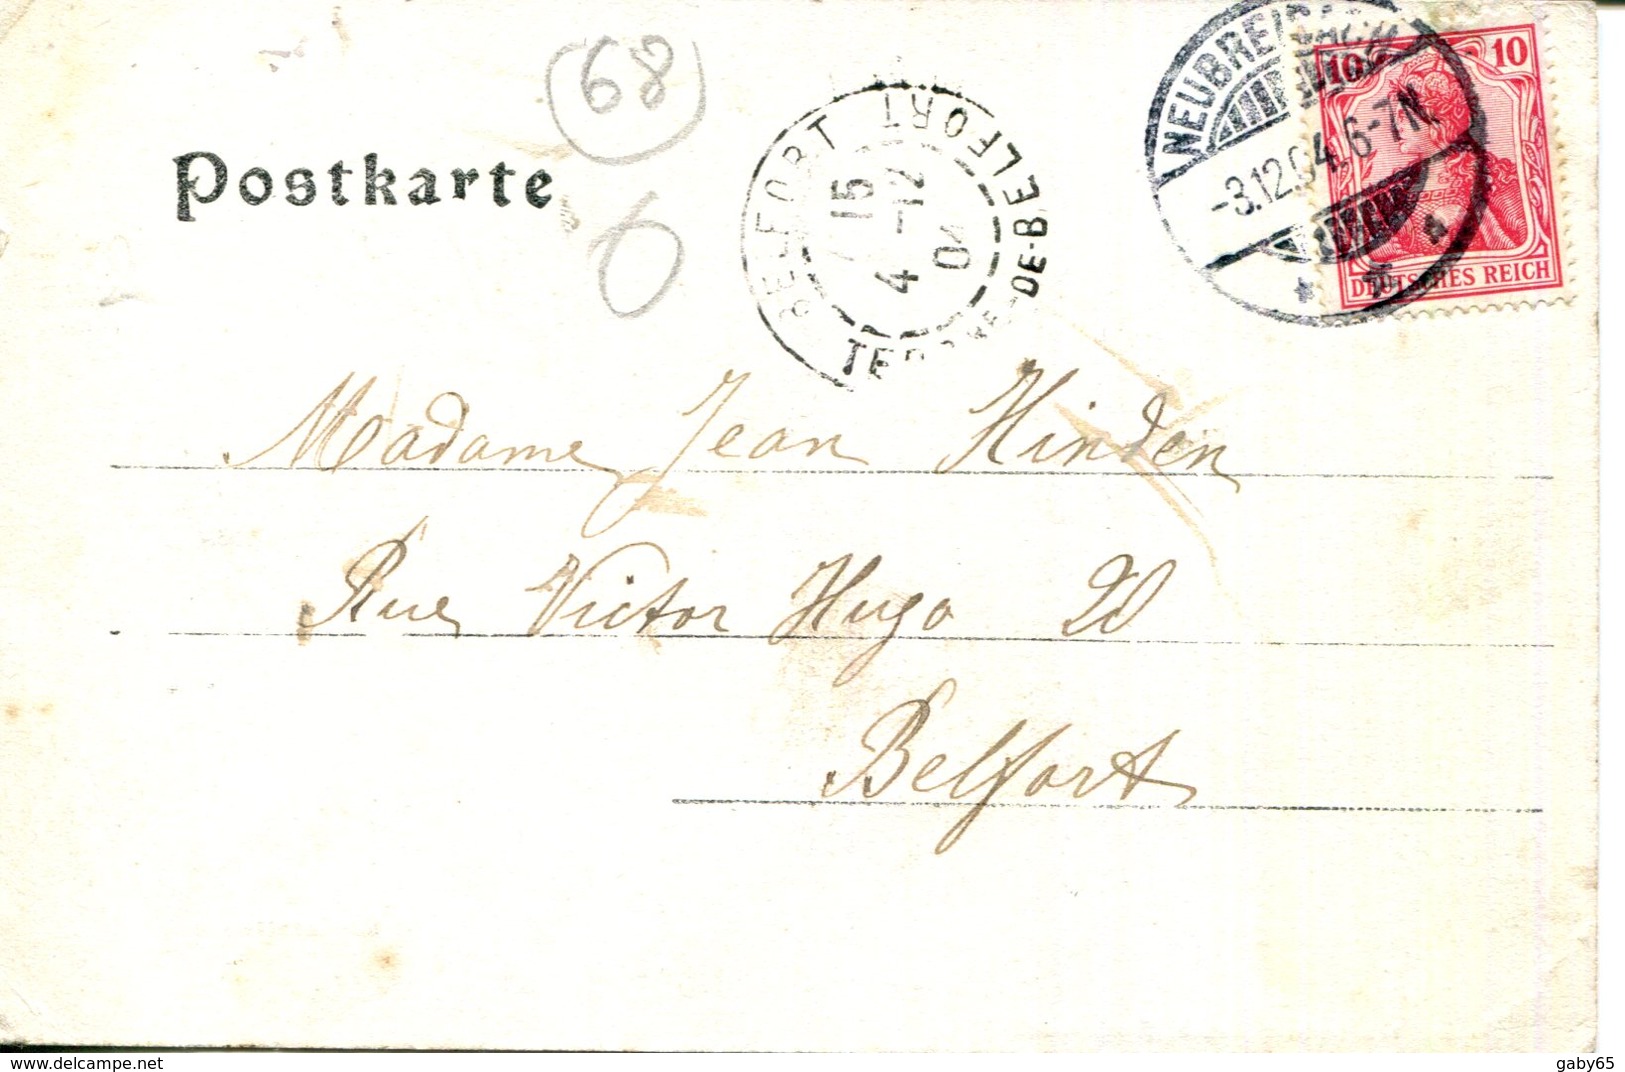 68
Postkarte
6
BELFORT
7 15
4 -12
04
TERRRE-DE-BELFORT
NEUBREISACH
-3.12.04. 6-7N.
10 10
DEUTSCHES REICH
Madame Jean Hinden
Rue Victor Hugo 20
Belfort
https://www.delcampe.net
gaby65